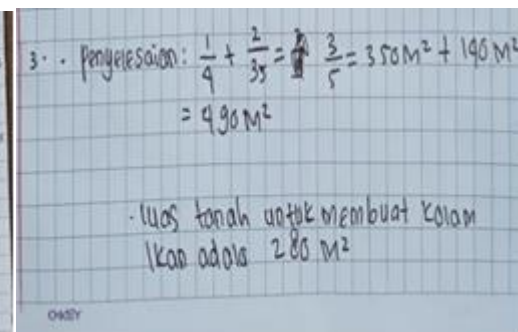 3. . Penyelesaian: 1/4 + 2/35 = 3/5 = 350 M² + 140 M²
= 490 M²
. luas tanah untuk membuat kolam
Ikan adala 280 M²